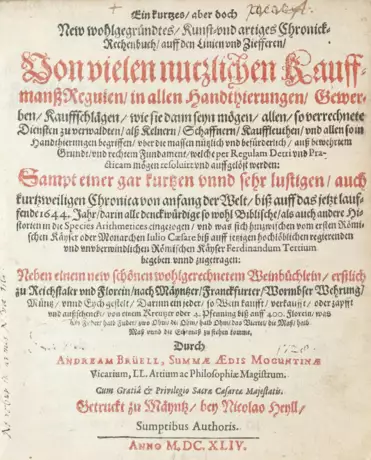 Ein kurtzes/ aber doch
New wohlgegründtes/ Kunst/vnd artiges Chronick-
Rechenbuch/ auff den Linien vnd Ziefferen/
Von vielen nutzlichen Kauff-
manß Reguten/ in allen Handthierungen/ Gewer-
ben/ Kauffschlägen/ wie sie dann seyn mögen/ allen/ so verrechnete
Diensten zu verwaldten/ alß Kelnern/ Schaffnern/ Kauffleuthen/ vnd allen so in
Handthierungen begriffen/ vber die massen nutzlich vnd befürderlich/ auß bewehrtem
Grund/ vnd rechtem Fundament/ welche per Regulam Detri vnd Pra-
cticam mögen resoluirt vnd auffgelöst werden:
Sampt einer gar kurtzen vnnd sehr lustigen/ auch
kurtzweiligen Chronica von anfang der Welt/ biß auff das jetzt lauf-
fende 1644. Jahr/ darin alle denckwürdige so wohl Biblische/ als auch andere Hi-
storien in die Species Arithmetices eingezogen/ vnd was sich hinzwischen vom ersten Römi-
schen Käyser oder Monarchen Iulio Cæsare biß auff jetzigen hochlöblichen regierenden
vnd vnvberwindlichen Römischen Käyser Ferdinandum Tertium
begeben vnnd zugetragen:
Neben einem new schönen wohlgerechnetem Weinbüchlein/ erstlich
zu Reichstaler vnd Florein/ nach Mäyntzer/ Franckfurter/ Wormbser Wehrung/
Müntz/ vnnd Eych gestelt/ Darinn ein jeder/ so Wein kaufft/ verkaufft/ oder zapfft
vnd außschenckt/ von einem Kreutzer oder 4. Pfenning biß auff 400. Florein/ was
ein Fuder/ halb Fuder/ zwo Ohm/ ein Ohm/ halb Ohm/ das Viertel/ die Maß/ halb
Maß vnnd die Echtmaß zu stehen komme.
Durch
ANDREAM BRÜELL, SUMMÆ ÆDIS MOGUNTINÆ
Vicarium, LL. Artium ac Philosophiæ Magistrum.
Cum Gratiâ & Privilegio Sacræ Cæsareæ Majestatis.
Getruckt zu Mäyntz/ bey Nicolao Heyll/
Sumptibus Authoris.
ANNO M. DC. XLIV.